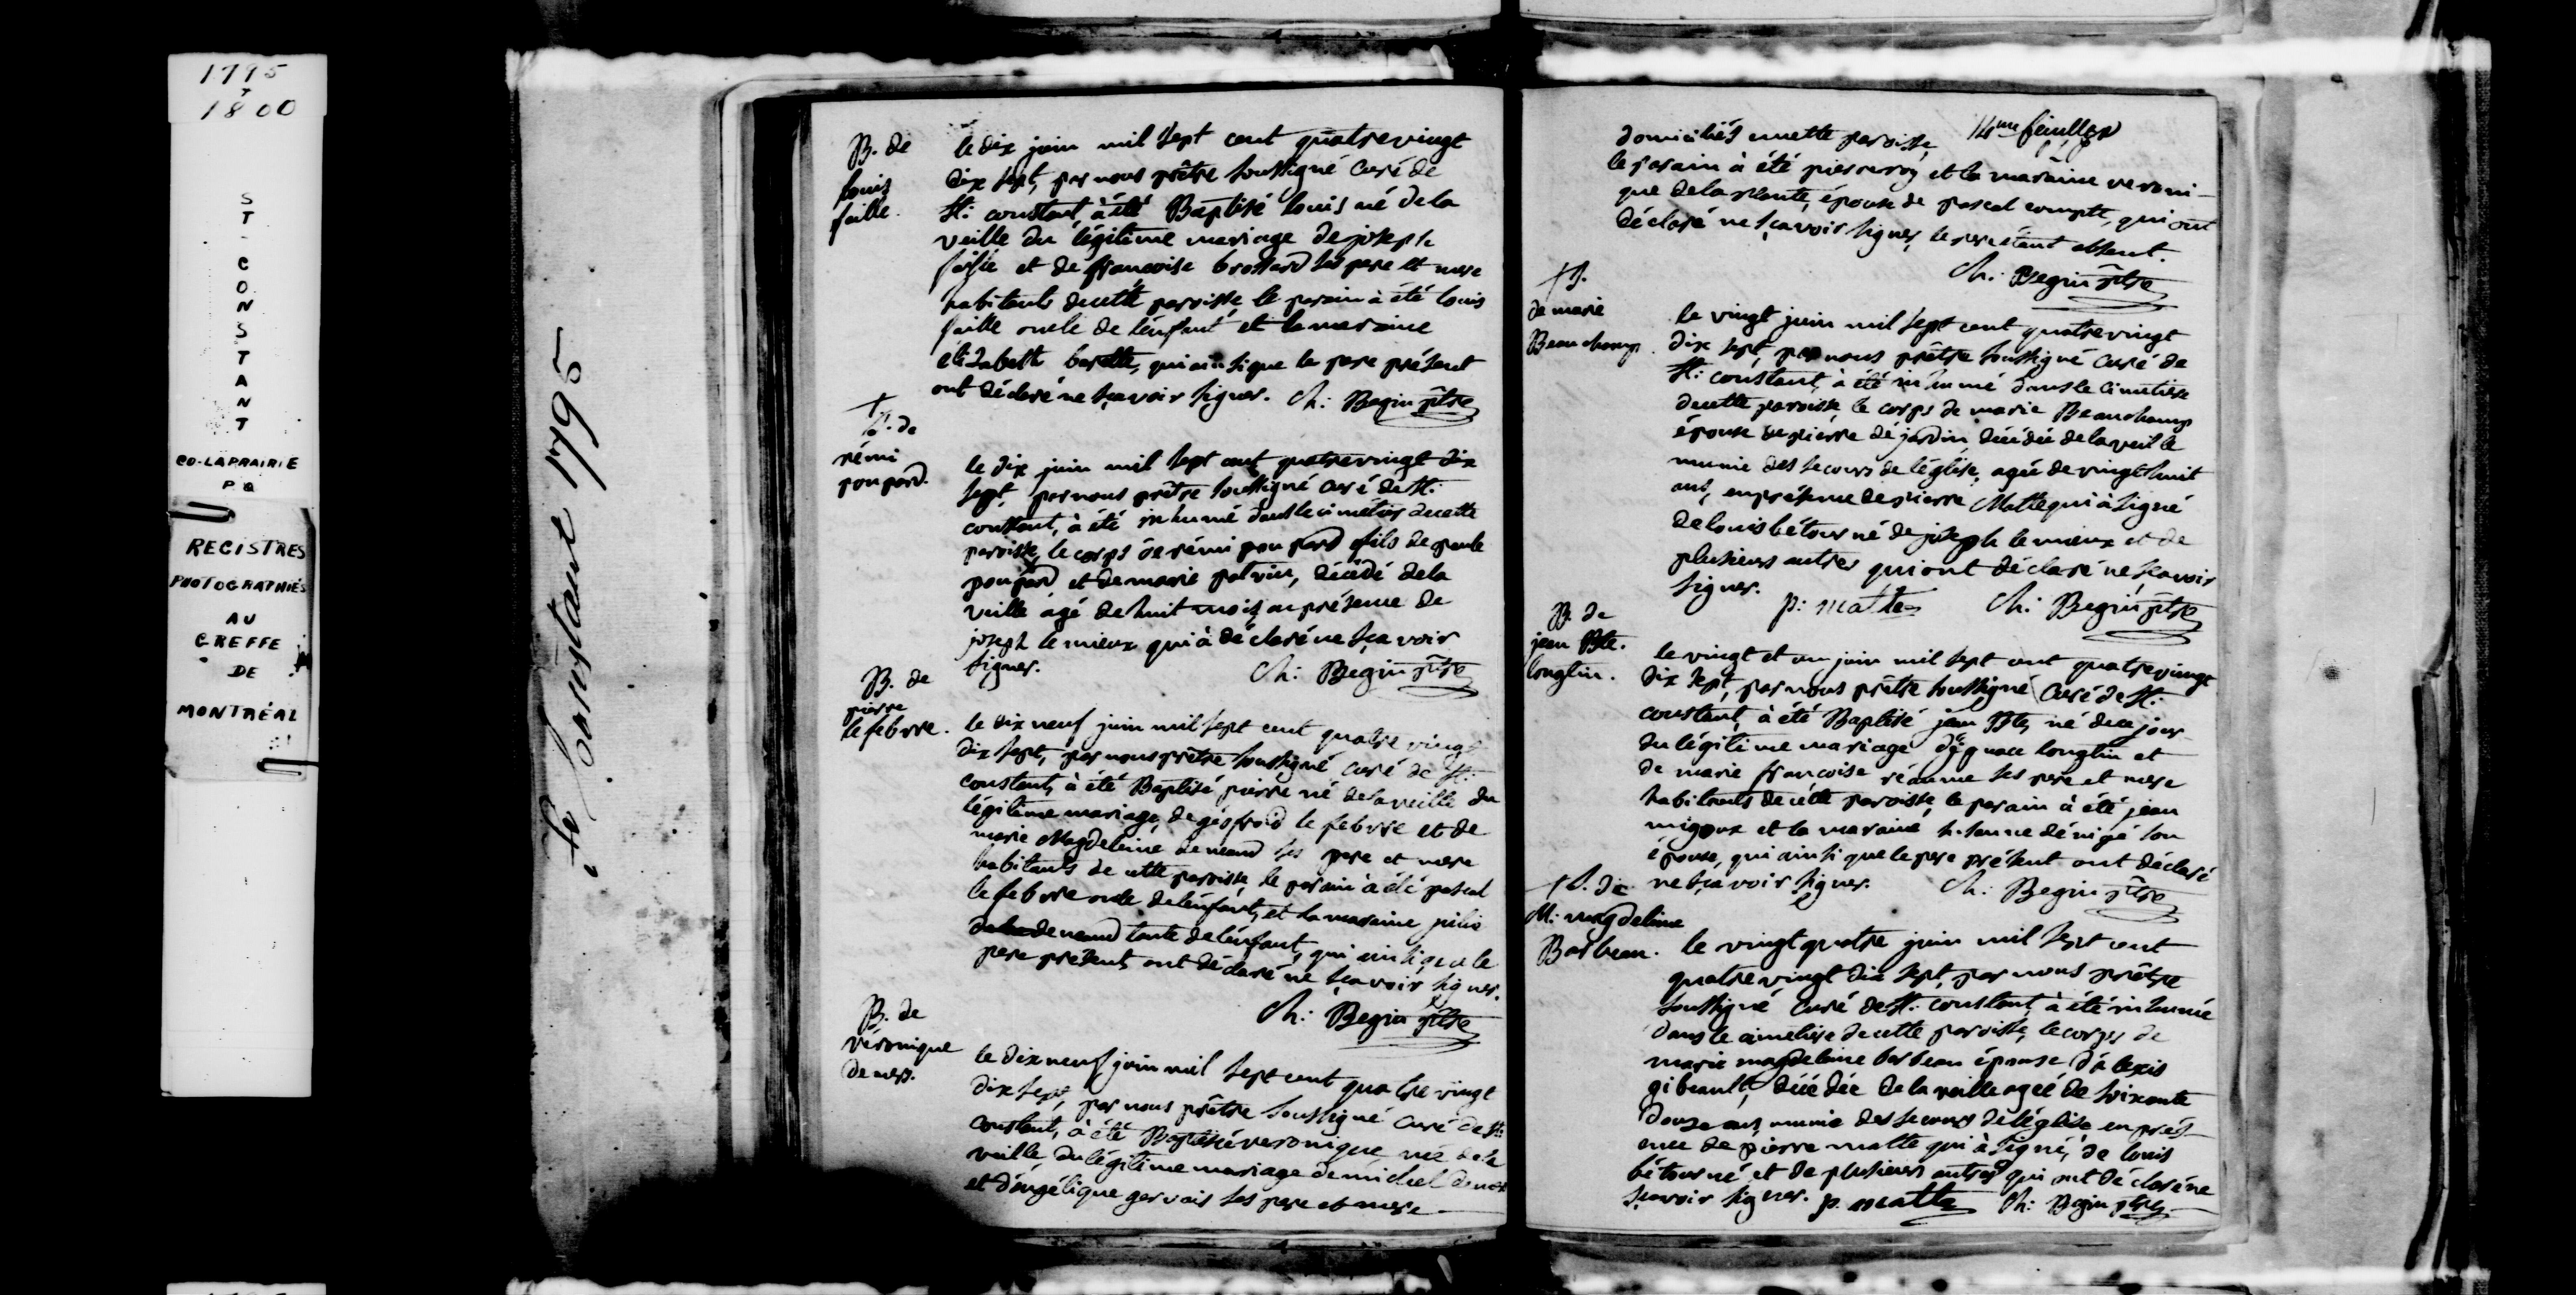 1795
1800
ST-CONSTANT
CO-LAPRAIRIE
P Q
REGISTRES
PHOTOGRAPHIÉS
AU
GREFFE
DE
MONTRÉAL
St Constant 1795
B. de
louis
faille.
le dix juin mil sept cent quatre vingt
dix sept, par nous prêtre soussigné curé de
St: constant, à été Baptisé louis né de la
veille du légitime mariage de joseph
faille et de françoise brossard ses pere et mere
habitants de cette paroisse, le parain à été louis
faille oncle de l'enfant et la maraine
elizabeth barette, qui ainsi que le pere présent
ont déclaré ne sçavoir signer. Ch: Begin ptre
+
S. de
rémi
poupard.
le dix juin mil sept cent quatre vingt dix
sept, par nous prêtre soussigné curé de St:
constant, à été inhumé dans le cimetier de cette
paroisse, le corps de rémi poupard fils de paule
poupard et de marie potvin, décédé de la
veille agé de huit mois en présence de
joseph le mieux qui à déclaré ne sçavoir
signer. Ch: Begin ptre
B. de
pierre
lefebvre.
le dix neuf juin mil sept cent quatre vingt
dix sept, par nous prêtre soussigné curé de St:
constant, à été Baptisé pierre né de la veille du
légitime mariage de géofroid le febvre et de
marie Magdeleine deneaud ses pere et mere
habitants de cette paroisse, le parain à été pascal
le febvre oncle de l'enfant, et la maraine
deneaud tante de l'enfant, qui ainsi que le
pere présent, ont déclaré ne sçavoir signer.
Ch: Begin ptre
B. de
véronique
demers.
le dix neuf juin mil sept cent quatre vingt
dix sept, par nous prêtre soussigné curé de St:
constant, à été Baptisé veronique née de la
veille, du légitime mariage de michel demers
et d'angélique gervais ses pere et mere
14me feuillet
domiciliés en cette paroisse
le parain à été pierre roy et la maraine veroni-
que de la plante, épouse de pascal compte, qui ont
déclaré ne sçavoir signer, le pere étant absent.
Ch: Begin ptre
+ S.
de marie
Beauchamp.
le vingt juin mil sept cent quatre vingt
dix sept, par nous prêtre soussigné curé de
St: constant, à été inhumé dans le cimetiere
de cette paroisse, le corps de marie Beauchamp
épouse de pierre déjardin, décédée de la veille
munie des secours de l'église, agée de vingt huit
ans, en présence de pierre Matte qui à signé
de louis bétourné de joseph le mieux et de
plusieurs autres qui ont déclaré ne sçavoir
signer. p: matte Ch: Begin ptre
B. de
jean Bte.
longtin.
le vingt et un juin mil sept cent quatre vingt
dix sept, par nous prêtre soussigné Curé de St:
constant, à été Baptisé jean Bte, né de ce jour
du légitime mariage d'ignace longtin et
de marie françoise réaume ses pere et mere
habitants de cette paroisse, le parain à été jean
et la maraine son
épouse, qui ainsi que le pere présent ont déclaré
ne sçavoir signer. Ch: Begin ptre
+ S. de
M: magdeleine
Barbeau.
le vingt quatre juin mil sept cent
quatre vingt dix sept, par nous prêtre
soussigné Curé de St: constant, à été inhumée
dans le cimetiere de cette paroisse, le corps de
marie magdeleine barbeau épouse d'alexis
gibeault, décédée de la veille agée de soixante
douze ans, munie des secours de l'église en prés-
ence de pierre matte qui à signé, de louis
bétourné, et de plusieurs autres qui ont déclaré ne
sçavoir signer. p. matte Ch: Begin ptre